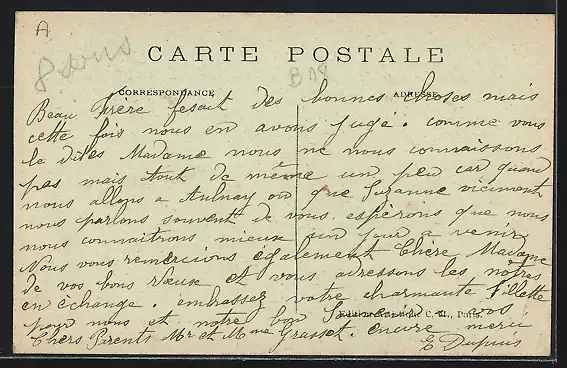 A
8 sous
CARTE POSTALE
B 18
CORRESPONDANCE
ADRESSE
Beau Frère fesait des bonnes choses mais
cette fois nous en avons jugé. comme vous
le dites Madame nous ne nous connaissons
pas mais tout de même un peu car quand
nous allons a Aulnay ou que Suzanne viennent
nous parlons souvent de vous. espérons que nous
nous connaitrons mieux un jour a venir
Nous vous remercions également Chère Madame
de vos bons vœux et vous adressons les nôtres
en échange. embrassez votre charmante fillette
pour nous et notre bon a vos
C. M., Paris.
Chers Parents Mr et Mme Grasset. encore merci
E Dupuis